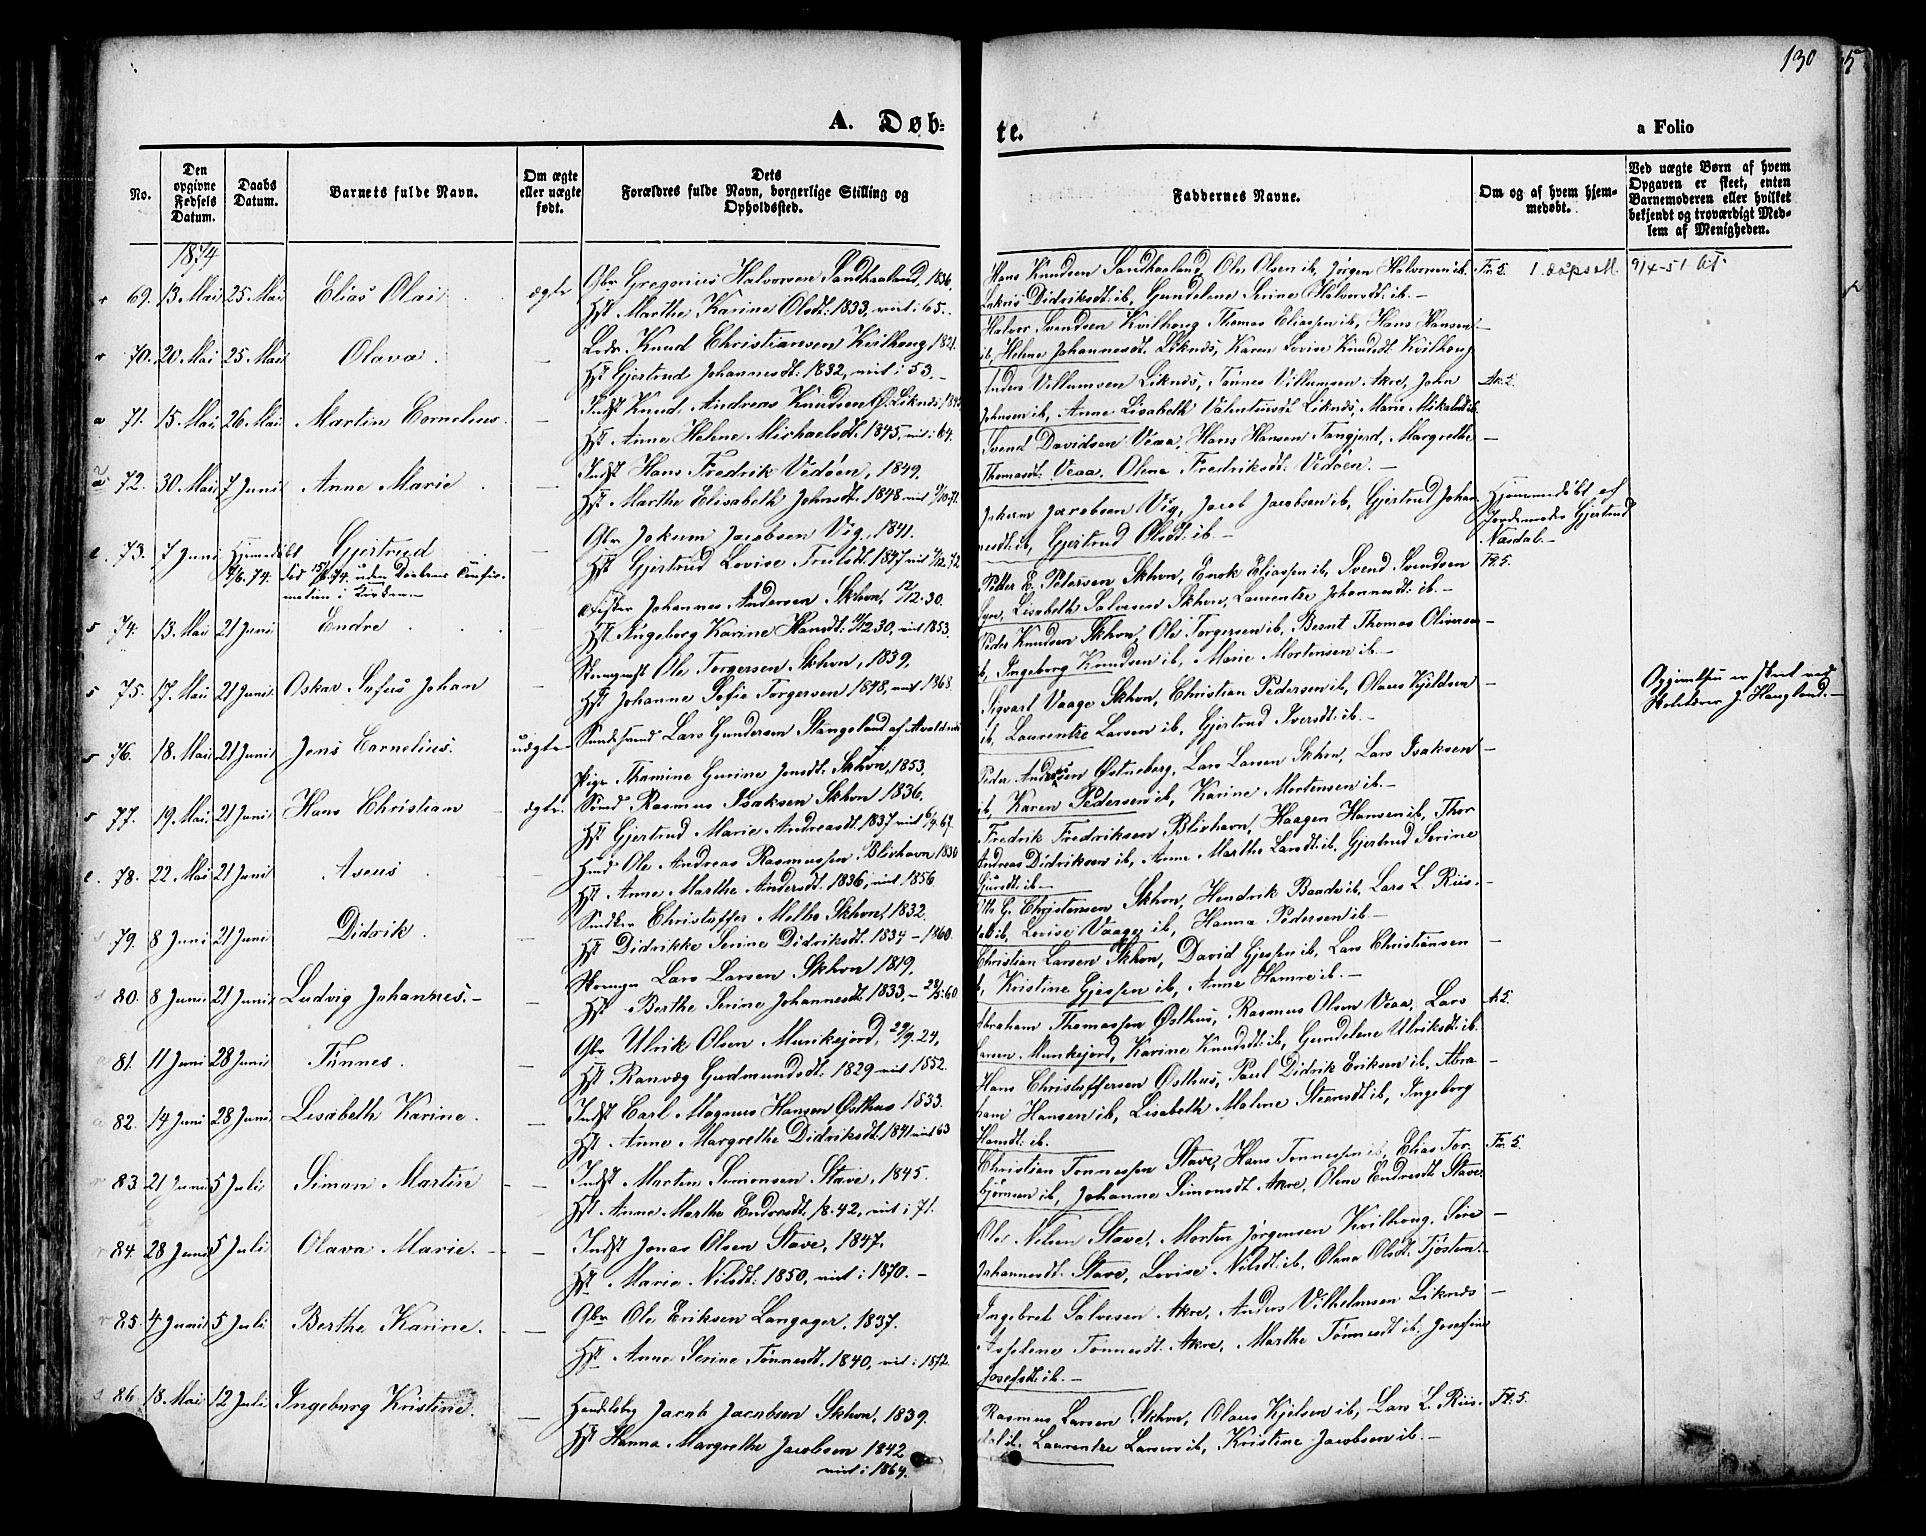 130
A. Døb-
te.
a Folio
No.
Den opgivne Fødsels Datum.
Daabs Datum.
Barnets fulde Navn.
Om ægte eller uægte født.
Dets Forældres fulde Navn, borgerlige Stilling og Opholdssted.
Faddernes Navne.
Om og af hvem hjemmedøbt.
Ved uægte Børn af hvem Opgaven er skeet, enten Barnemoderen eller hvilket bekjendt og troværdigt Medlem af Menigheden.
1874
69. 13 Mai 25 Mai Elias Olai ægte Gbr Gregorius Halvorsen Sandhaaland, 1836,
Hst Marthe Karine Olsdt: 1833, viet i 65.
Hans Knudsen Sandhaaland, Ole Olsen ib, Jørgen Halvorsen ib.
Didriksdt: ib, Gundelene Serine Halvorsdt: ib.
70. 20 Mai 25 Mai Olava. — Knud Christiansen Kvilhoug, 1821.
Hst Gjertrud Johannesdt: 1832, viet i 53.
Halvor Svendsen Kvilhoug, Thomas Eliassen ib, Hans Hansen
ib, Helne Johannesdt: Liknes, Karen Lovise Knudsdt: Kvilhoug
71. 15 Mai 26 Mai Martin Cornelius. — Indst Knud Andreas Knudsen Liknes, 1845
Hst Anne Helne Michaelsdt: 1845, viet i 64.
Anders Villumsen Liknes, Tønnes Villumsen Akre, John
Johnsen ib, Anne Lisabeth Valentinsdt: Liknes, Marie Mikalsdt ib.
72. 30 Mai 7 Juni Anne Marie — Indst Hans Fredrik Vedøen, 1849.
Hst Marthe Elisabeth Johnsdt: 1848 viet
Svend Davidsen Veaa, Hans Hansen Tangjerd, Margrethe
Thomasdt: Veaa. Olene Fredriksdt: Vedøen.
73. 7 Juni Hjemedøbt Gjertrud — Gbr Jokum Jacobsen Vig, 1841.
Hst Gjertrud Lovise Trulsdt: 1847 viet
Jacobsen Vig, Jacob Jacobsen ib, Gjertrud Johan
nesdt: ib, Gjertrud Olsdt: ib.
Hjemmedøbt af
Jordemoder Gjertrud
Nasdal.
74. 13 Mai 21 Juni Endre — Johannes Andersen Skhvn, 12/12.30.
Hst Ingeborg Karine Hansdt: viet 1853.
Petter E. Petersen Skhvn, Enok Eliassen ib, Svend Svendsen
Lisabeth Salvesen Skhvn, Laurentze Johannesdt: ib.
75. 17. Mai 21 Juni. Oskar Sofus Johan — Ole Torgersen Skhvn, 1839,
Hst Johanne Sofie Torgersen 1848, viet 1868
Peder Knudsen Skhvn, Ole Torgersen ib, Bernt Thomas Oliversen
ib, Ingeborg Knudsen ib, Marie Mortensen ib.
76. 18 Mai 21 Juni Jens Cornelius. uægte Lars Gundersen Stangeland af Avaldsnæs
Pige Thamine Gurine Jensdt: Skhvn, 1853.
Sigvart Vaage Skhvn, Christian Pedersen ib, Olaus Kjeldsen
ib, Laurentze Larsen ib, Gjertrud Iversdt: ib.
Opgivelsen er skeet ved
J. Haugland.
77. 19 Mai. 21 Juni Hans Christian ægte. Rasmus Isaksen Skhvn 1836,
Hst Gjertrud Marie Andreasdt: 1837 viet
Peder Andersen Østneberg, Lars Larsen Skhvn, Lars Isaksen
ib, Karen Pedersen ib, Karine Mortensen ib.
78. 22 Mai 21 Juni Aseus — Hmd Ole Andreas Rasmussen Blivhavn 1830
Hst Anne Marthe Andersdt: 1836, viet 1856
Fredrik Fredriksen Blivhavn, Haagen Hansen ib, Thor
Andreas Didriksen ib, Anne Marthe Larsdt: ib, Gjertrud Serine
79. 8 Juni 21 Juni Didrik. — Christoffer Melbo Skhvn, 1832.
Hst Didrikke Serine Didriksdt: 1834 – 1860.
G. Christensen Skhvn, Hendrik Baade ib, Lars L. Riis-
dal ib, Lovise Vaage ib, Hanna Pedersen ib
80. 8 Juni 21 Juni Ludvig Johannes. — Lars Larsen Skhvn 1819,
Hst Berthe Serine Johannesdt: 1833,
Christian Larsen Skhvn, David Gjessen ib, Lars Christiansen
ib, Kristine Gjessen ib, Anne Hamre ib.
81. 11 Juni 28 Juni Tønnes. — Gbr Ulrik Olsen Munkejord, 24,
Hst Ranveg Gudmundsdt: 1829 viet 1852.
Abraham Thomassen Østhus, Rasmus Olsen Veaa, Lars
Larsen Munkejord, Karine Knudsdt: ib, Gundelene Ulriksdt: ib.
82. 14 Juni 28 Juni Lisabeth Karine. — Indst Carl Magnus Hansen Østhus 1833.
Hst. Anne Margrethe Didriksdt. 1841 viet 63
Hans Christoffersen Østhus, Paul Didrik Eriksen ib, Abra
ham Hansen ib, Lisabeth Malene ib, Ingeborg
Hansdt: ib.
83. 21 Juni 5 Juli Simon Martin — Indst Martin Simonsen Stave, 1845.
Hst. Anne Marthe Endresdt: 1842, viet i 71.
Christian Tønnessen Stave, Hans Tønnessen ib, Elias Tor
bjørnsen ib, Johanne Simonsdt: Akre, Olene Endresdt: Stave.
84. 28 Juni 5 Juli Olava Marie. — Indst Jonas Olsen Stave, 1847.
Hst. Marie Nilsdt: 1850, viet i 1870.
Ole Nilsen Stave, Morten Jørgensen Kvilhoug,
Johannesdt: Stave, Lovise Nilsdt: ib, Olena Olsdt:
85. 4 Juni 5 Juli Berthe Karine. — Gbr Ole Eriksen Langager, 1837.
Hst. Anne Serine Tønnesdt: 1840, viet i 1872.
Ingebret Salvesen Akre, Anders Vilhelmsen Liknes
Tønnesdt: Akre, Marthe Tønnesdt: ib, Josefine
Josefsdt: ib.
86 18 Mai 12 Juli Ingeborg Kristine. — Jacob Jacobsen Skhvn, 1839.
Hst Hanna Margrethe Jacobsen 1842
viet i 1864.
Rasmus Larsen Skhvn, Olaus Kjelsen ib, Lars L. Riis-
dal ib, Laurentze Larsen ib, Kristine Jacobsen ib.